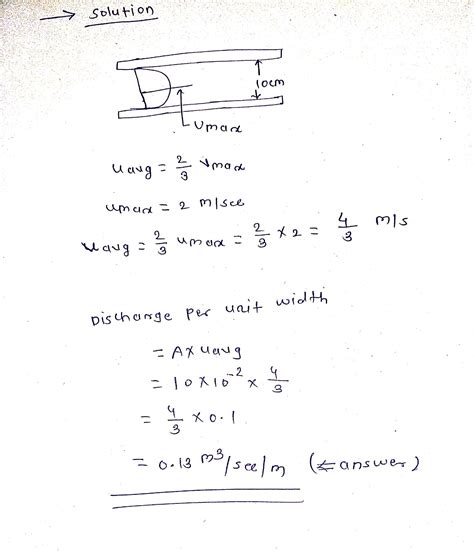 → Solution
10cm
Vmax
uavg = 2/3 Vmax
umax = 2 m/sec
uavg = 2/3 umax = 2/3 × 2 = 4/3 m/s
Discharge per unit width
= A × uavg
= 10 × 10⁻² × 4/3
= 4/3 × 0.1
= 0.13 m³/sec/m (⇐ answer)